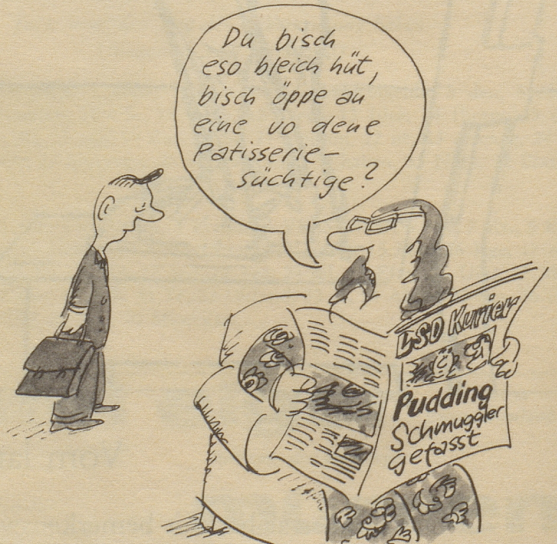 Du bisch
eso bleich hüt,
bisch öppe au
eine vo dene
Patisserie-
süchtige?
LSD Kurier
Pudding
Schmuggler
gefasst